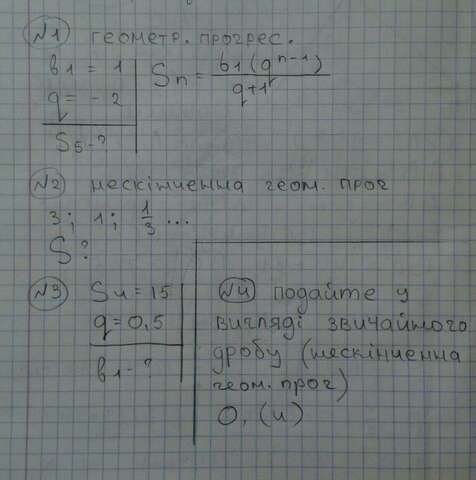 №1 геометр. прогрес.
b1 = 1
q = - 2
Sn = b1(q^n-1) / q+1
S5-?
№2 нескінченна геом. прог
3; 1; 1/3 ...
S?
№3 S4 = 15
q = 0,5
b1-?
№4 подайте у
вигляді звичайного
дробу (нескінченна
геом. прог)
0,(4)